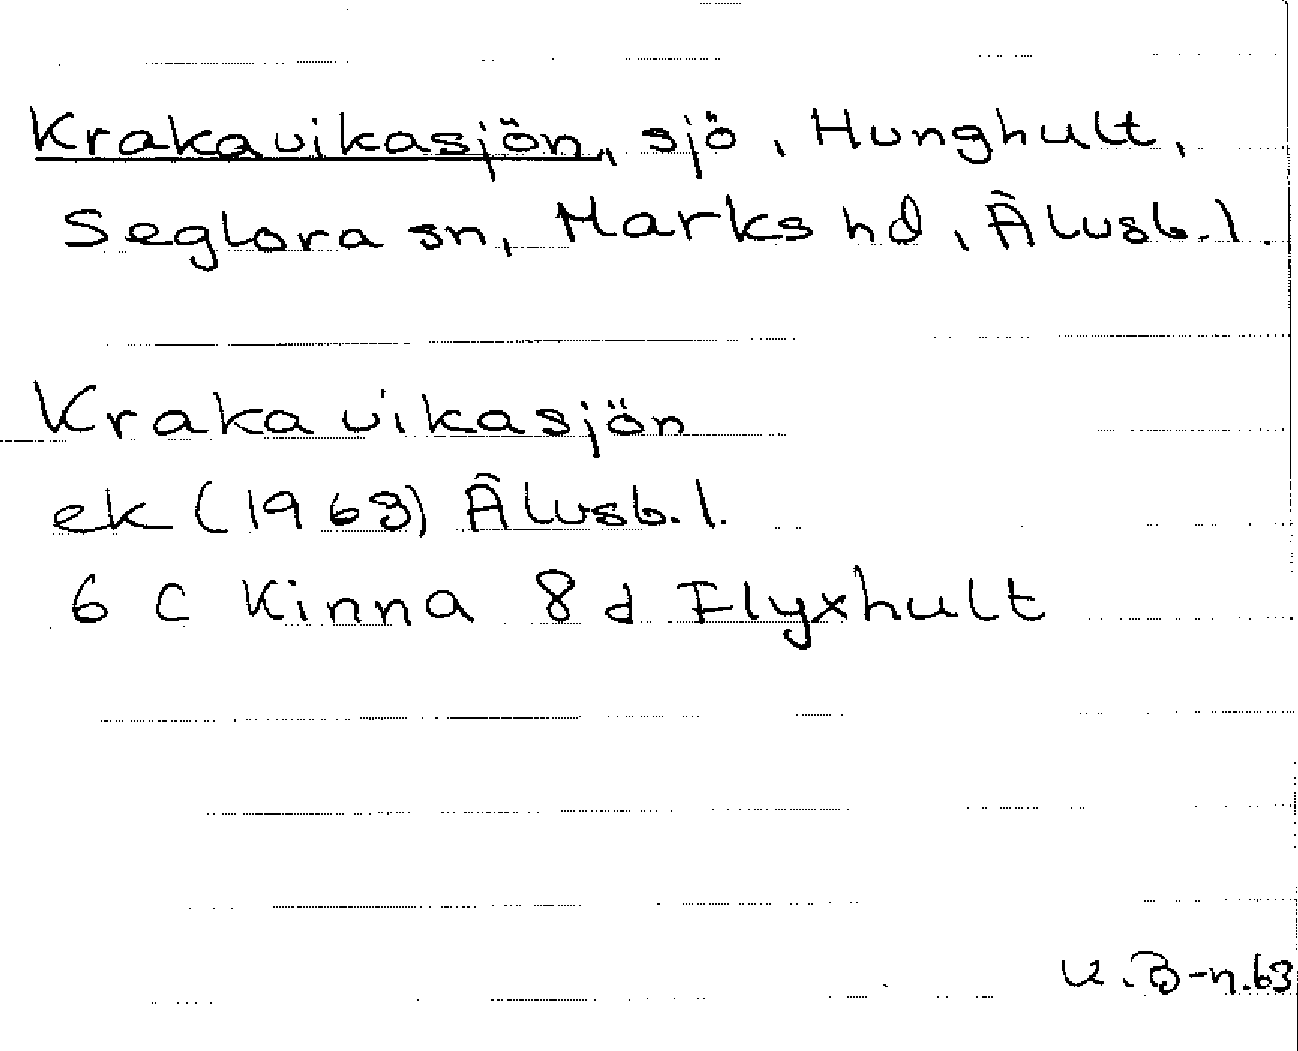 Krakavikasjön, sjö, Hunghult,
Seglora sn, Marks hd, Älvsb.l.
Krakavikasjön
ek (1963) Älvsb.l.
6 C Kinna 8 d Flyxhult
K.B-n.63